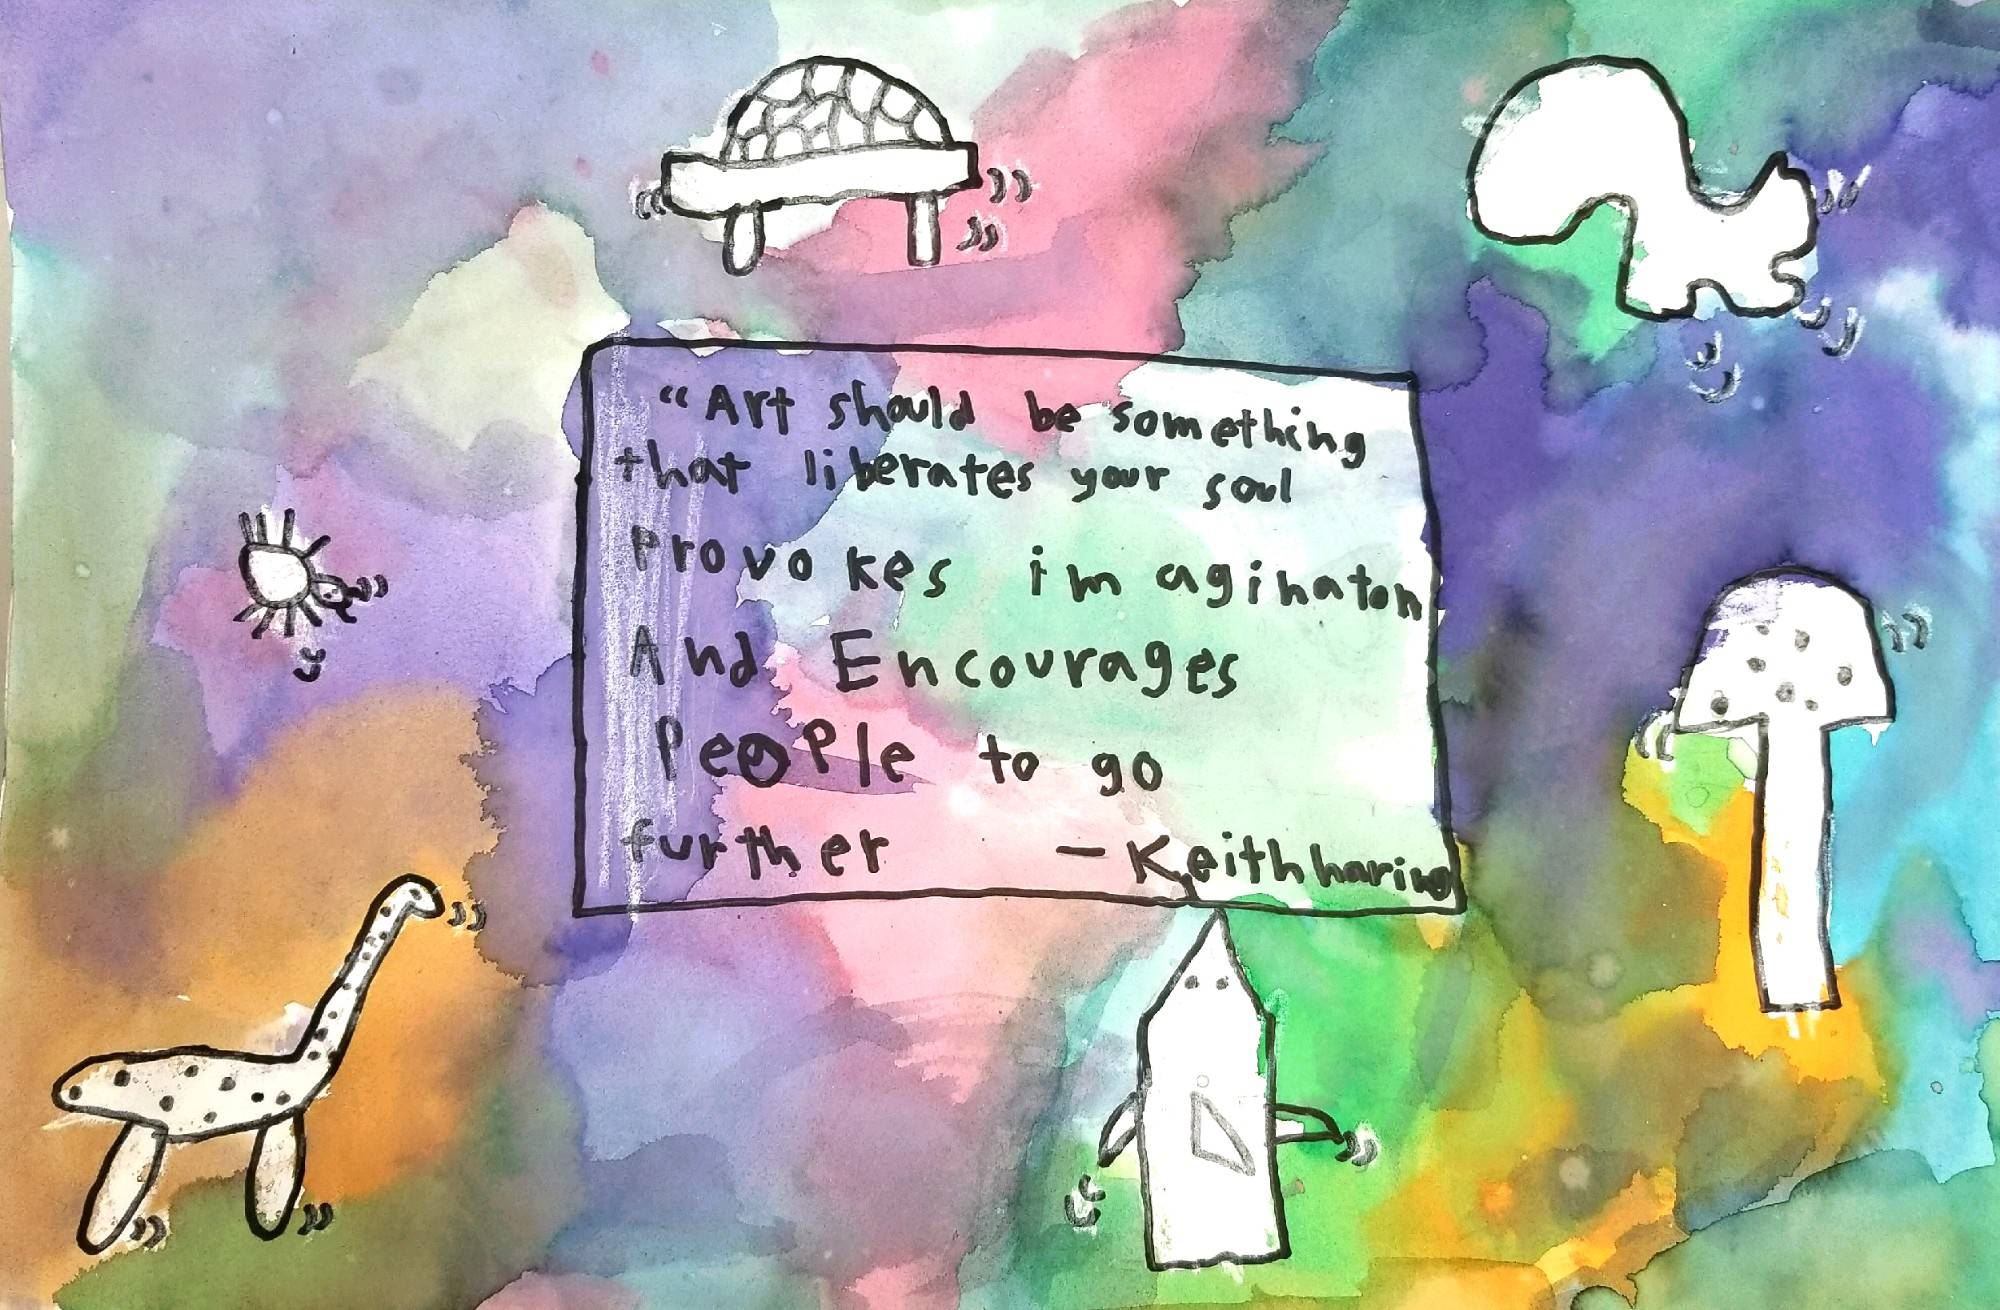 “Art should be something
that liberates your soul
Provokes imaginaton
And Encourages
People to go
further – Keith haring